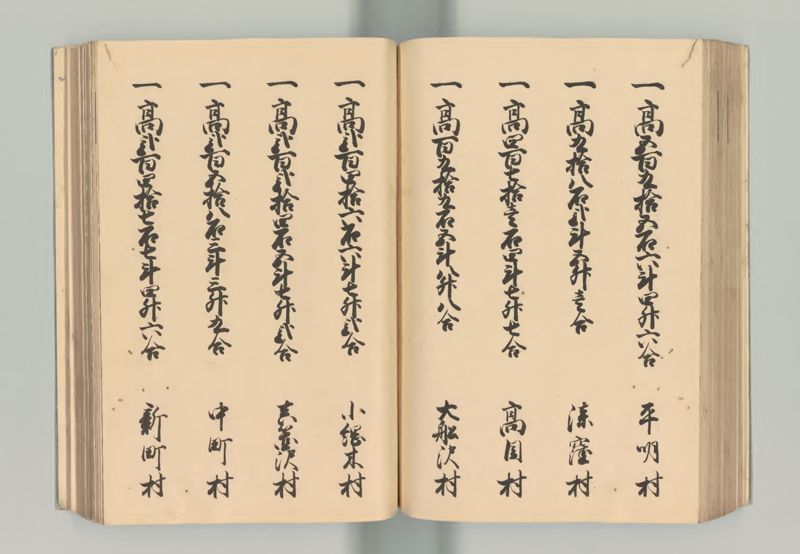 一高五百九拾五石六斗四升六合 平明村
一高九拾八石弐斗五升壱合 漆窪村
一高四百七拾壱石四斗七升七合 高目村
一高百九拾九石五斗八升八合 大舩沢村
一高弐百四拾六石六斗七升弐合 小綱木村
一高弐百弐拾四石五斗七升弐合
一高弐百五拾八石三斗三升九合 中町村
一高弐百四拾七石七斗四升六合 新町村